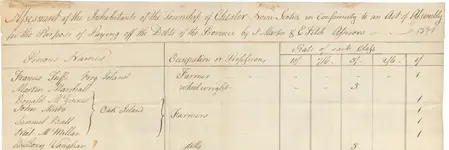 Assessment of the Inhabitants of the Township of Chester Nova Scotia in Conformity to an Act of Assembly
for the Purpose of Paying off the Debt of the Province by
Rate of each Class
Persons Names Occupation or Profession 10/ 7/6 5/ 2/6 1/
Francis Farmer 1
Martin Marshall wheelwright 5
Donald McGinnis 1
John Smith Oak Island 1
Samuel Ball Farmers 1
Neil McMillan 1
Anthony Vaughan ditto 5